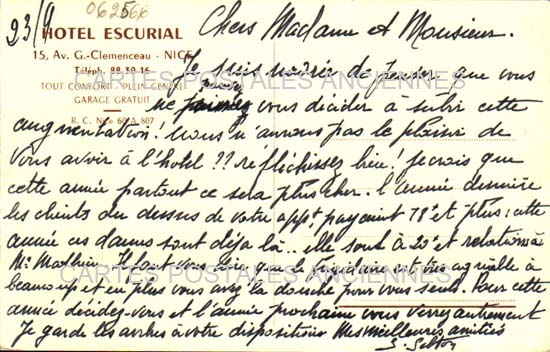 23/9
062566
HOTEL ESCURIAL
15, Av. G.-Clemenceau - NICE
Téléph. 88.30-16
TOUT CONFORT - PLEIN CENTRE
GARAGE GRATUIT
R. C. Nice 60 A 807
CARTES POSTALES ANCIENNES
Chers Madame et Monsieur.
Je suis de penser que vous
ne vous décider à subir cette
augmentation! Nous n'aurons pas le plaisir de
vous avoir à l'hotel ?? réflichissez bien! je crois que
cette année partout ce sera plus cher. l'année dernière
les clients du dessus de votre appt payaient 18 et plus: cette
année ces dames sont déjà là.. elle sont à 20 et relations à
Mr Il faut vous dire que le est très agréable à
beaucoup et en plus vous avez la douche pour vous seuls. Pour cette
année décidez-vous et l'année prochaine vous verrez autrement
Je garde les arrhes à votre disposition Mes meilleures amitiés
CARTES POSTALES ANCIENNES